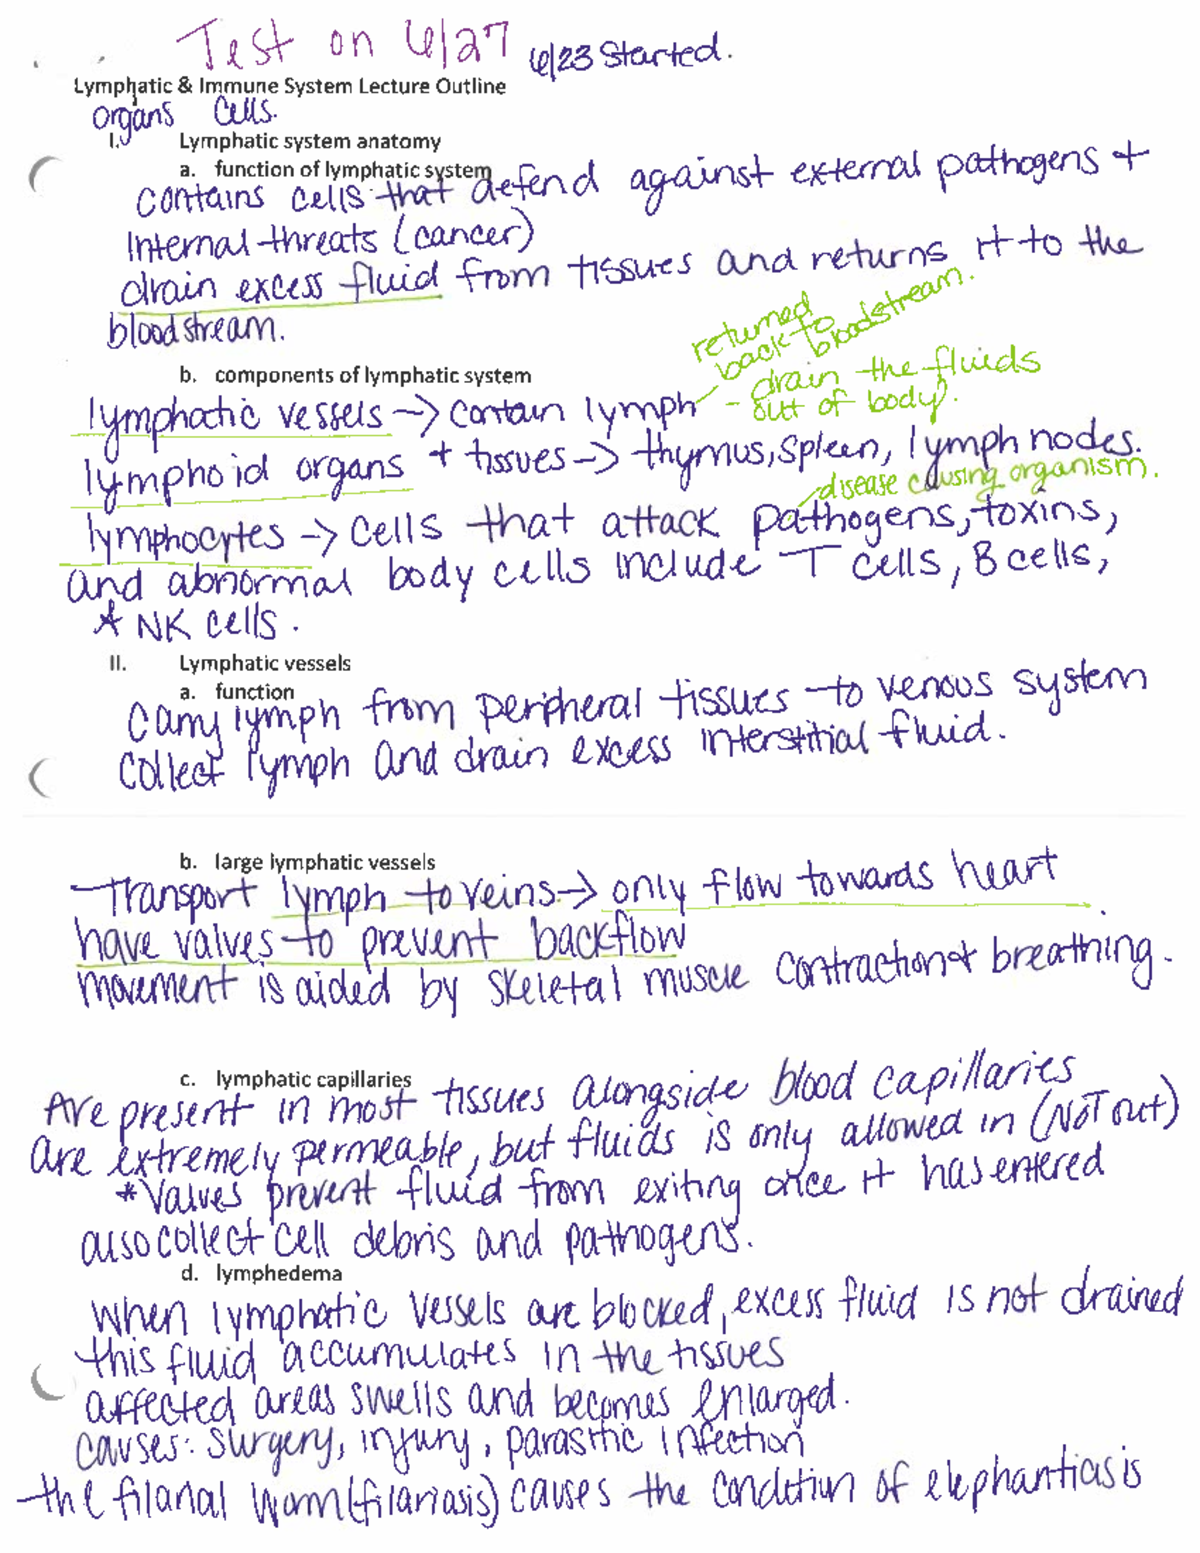 Test on 6/27 6/23 Started.
Lymphatic & Immune System Lecture Outline
organs cells.
I. Lymphatic system anatomy
a. function of lymphatic system
contains cells that defend against external pathogens +
Internal threats (cancer)
drain excess fluid from tissues and returns it to the
bloodstream.
returned
back to
bloodstream.
b. components of lymphatic system
- drain the fluids
lymphatic vessels -> contain lymph - out of body).
lymphoid organs + tissues -> thymus, spleen, lymph nodes.
disease causing organism.
lymphocytes -> cells that attack pathogens, toxins,
and abnormal body cells include T cells, B cells,
+ NK cells.
II. Lymphatic vessels
a. function
carry lymph from peripheral tissues to venous system
collect lymph and drain excess interstitial fluid.
b. large lymphatic vessels
Transport lymph to veins -> only flow towards heart
have valves to prevent backflow
movement is aided by skeletal muscle contraction + breathing.
c. lymphatic capillaries
Are present in most tissues alongside blood capillaries
are extremely permeable, but fluids is only allowed in (NOT out)
*Valves prevent fluid from exiting once it has entered
also collect cell debris and pathogens.
d. lymphedema
when lymphatic vessels are blocked, excess fluid is not drained
this fluid accumulates in the tissues
affected areas swells and becomes enlarged.
causes: surgery, injury, parasitic infection
the filarial worm (filariasis) causes the condition of elephantiasis